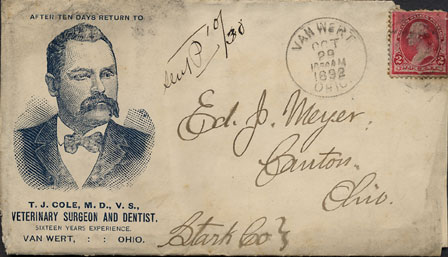 AFTER TEN DAYS RETURN TO
T. J. COLE, M. D., V. S.,
VETERINARY SURGEON AND DENTIST.
SIXTEEN YEARS EXPERIENCE.
VAN WERT, : : OHIO.
10/30
VAN WERT
OCT
29
1892
OHIO
2 2
Ed. J. Meyer.
Canton.
Ohio.
Stark Co